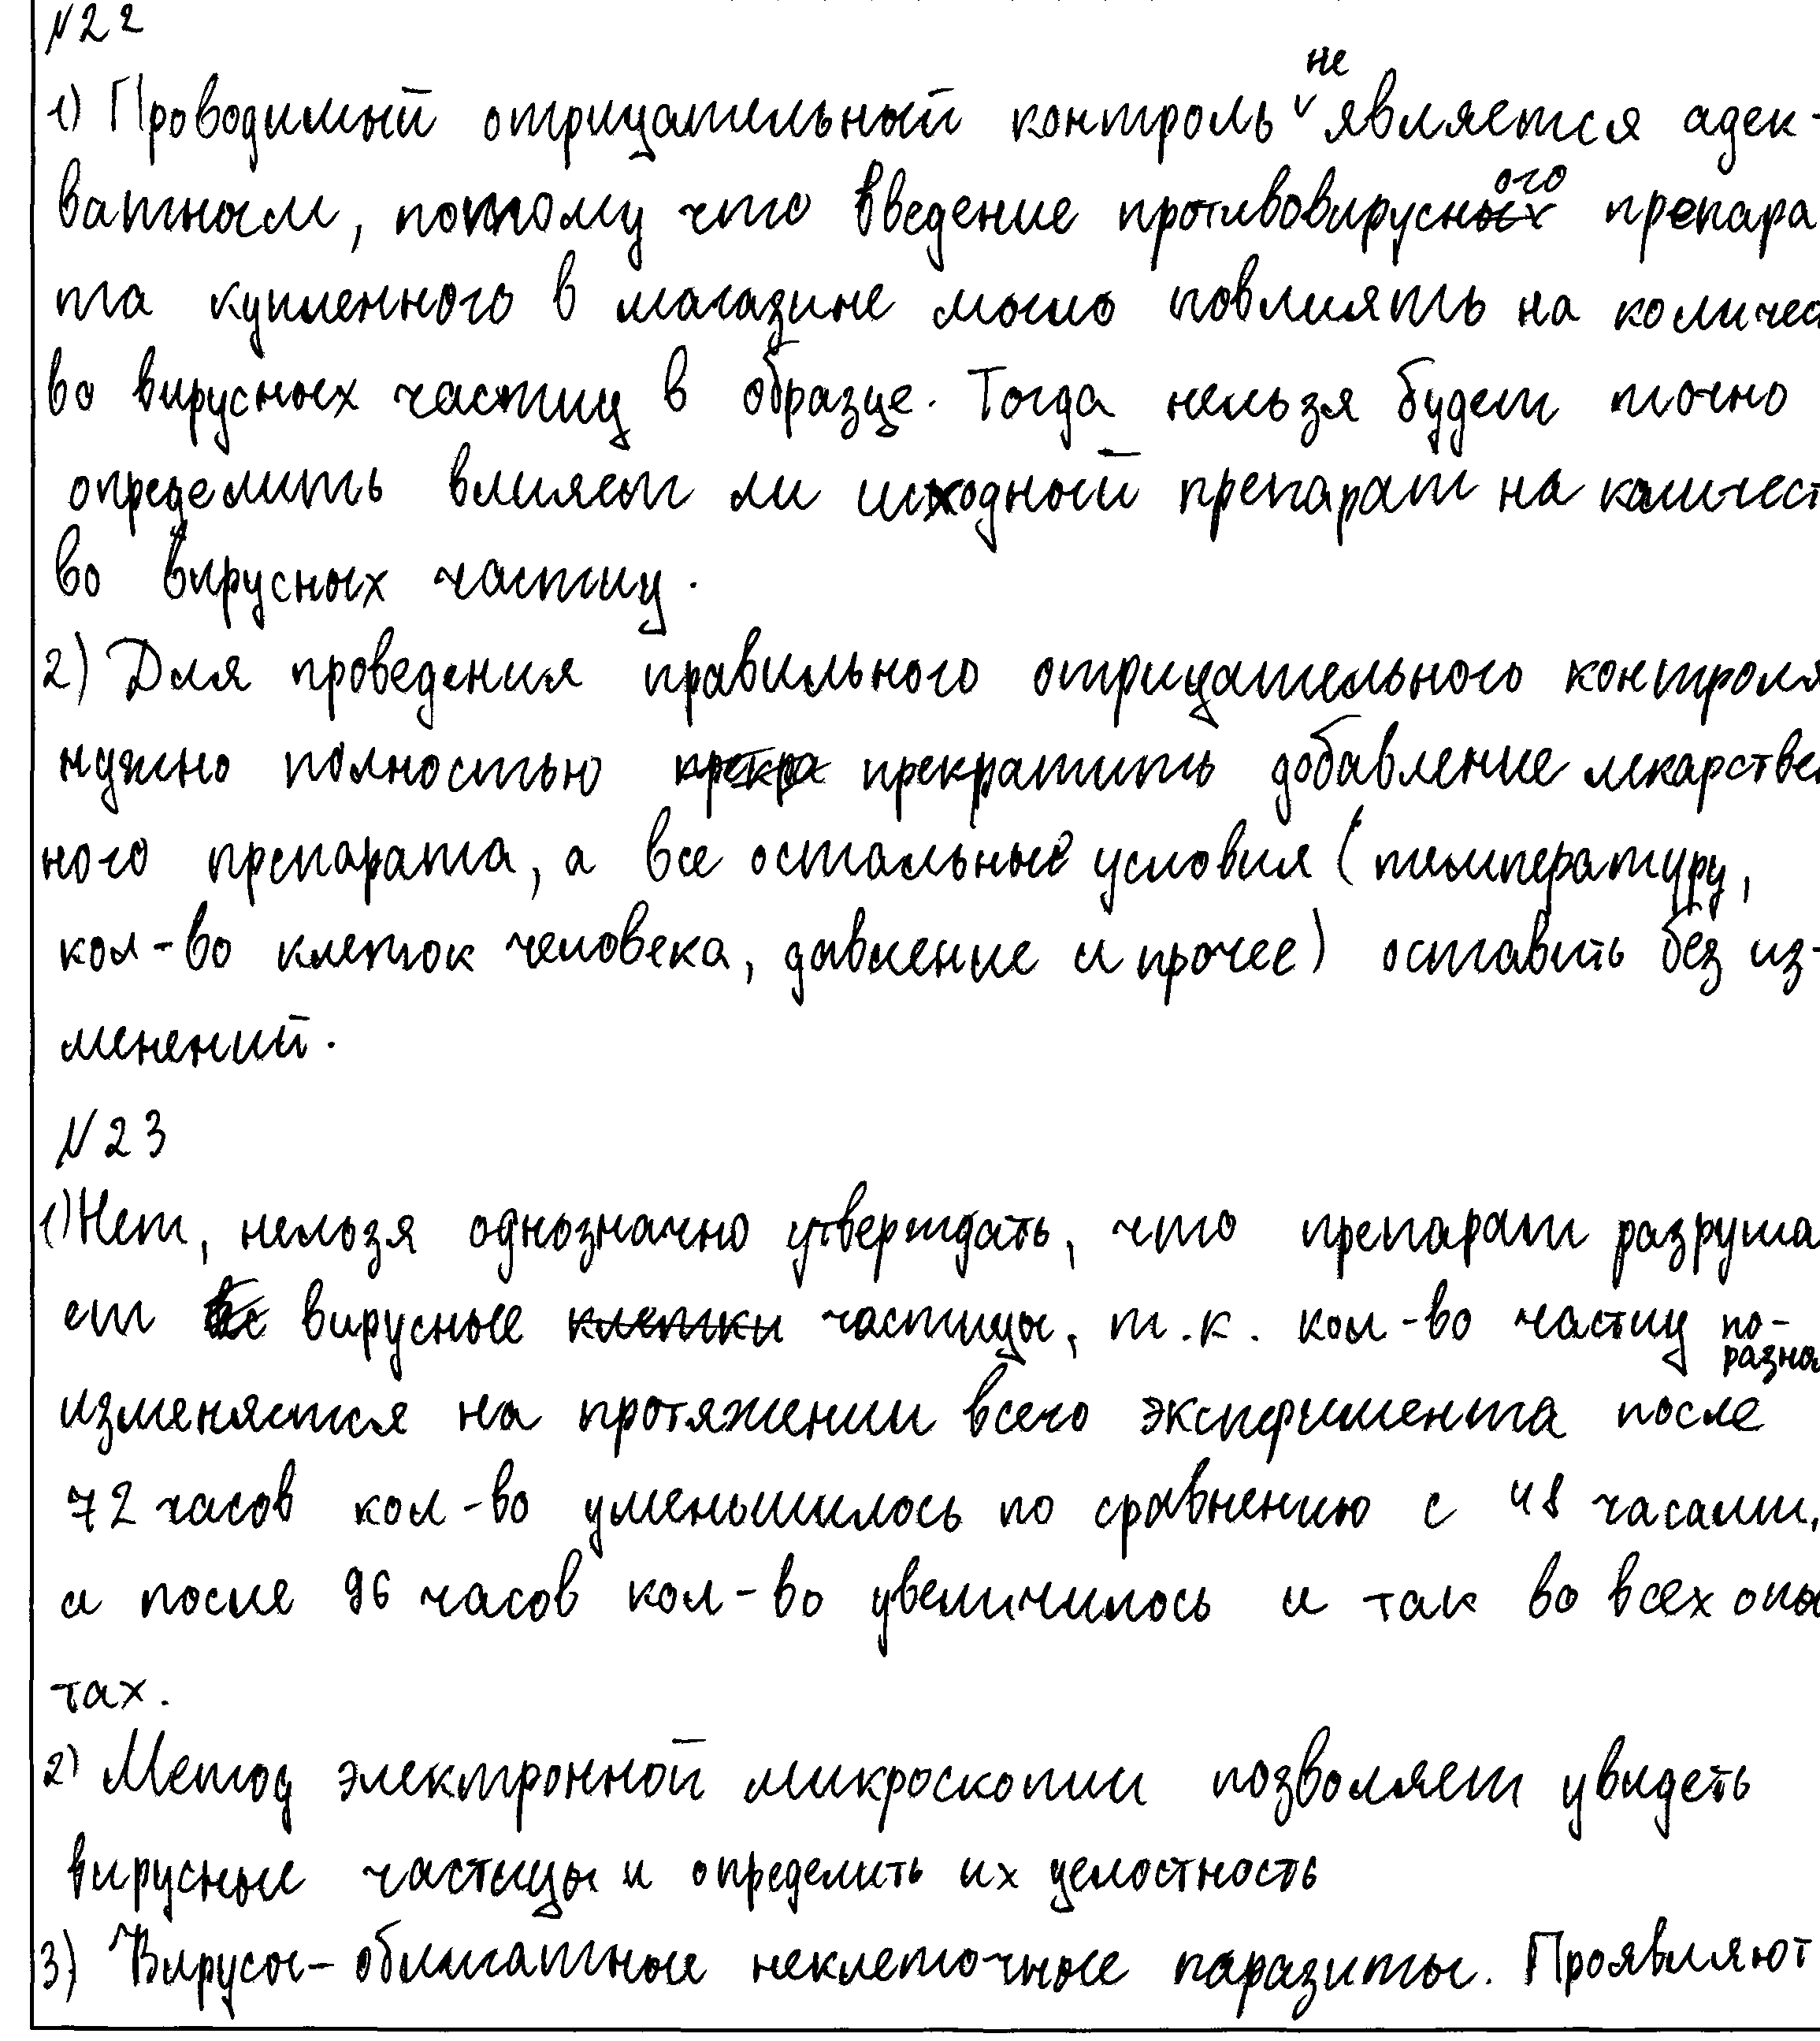 №22
1) Проводимый отрицательный контроль не является адек-
ватным, потому что введение противовирусного препара
та купленного в магазине могло повлиять на количес
во вирусных частиц в образце. Тогда нельзя будет точно
определить влияет ли исходный препарат на количест
во вирусных частиц.
2) Для проведения правильного отрицательного контроля
нужно полностью прекратить добавление лекарствен
ного препарата, а все остальные условия (температуру,
кол-во клеток человека, давление и прочее) оставить без из-
менений.
№23
1) Нет, нельзя однозначно утверждать, что препарат разруша
ет вирусные частицы, т.к. кол-во частиц по-разно
изменяется на протяжении всего эксперимента после
72 часов кол-во уменьшилось по сравнению с 48 часами,
а после 96 часов кол-во увеличилось и так во всех опы
тах.
2) Метод электронной микроскопии позволяет увидеть
вирусные частицы и определить их целостность
3) Вирусы - облигатные неклеточные паразиты. Проявляют